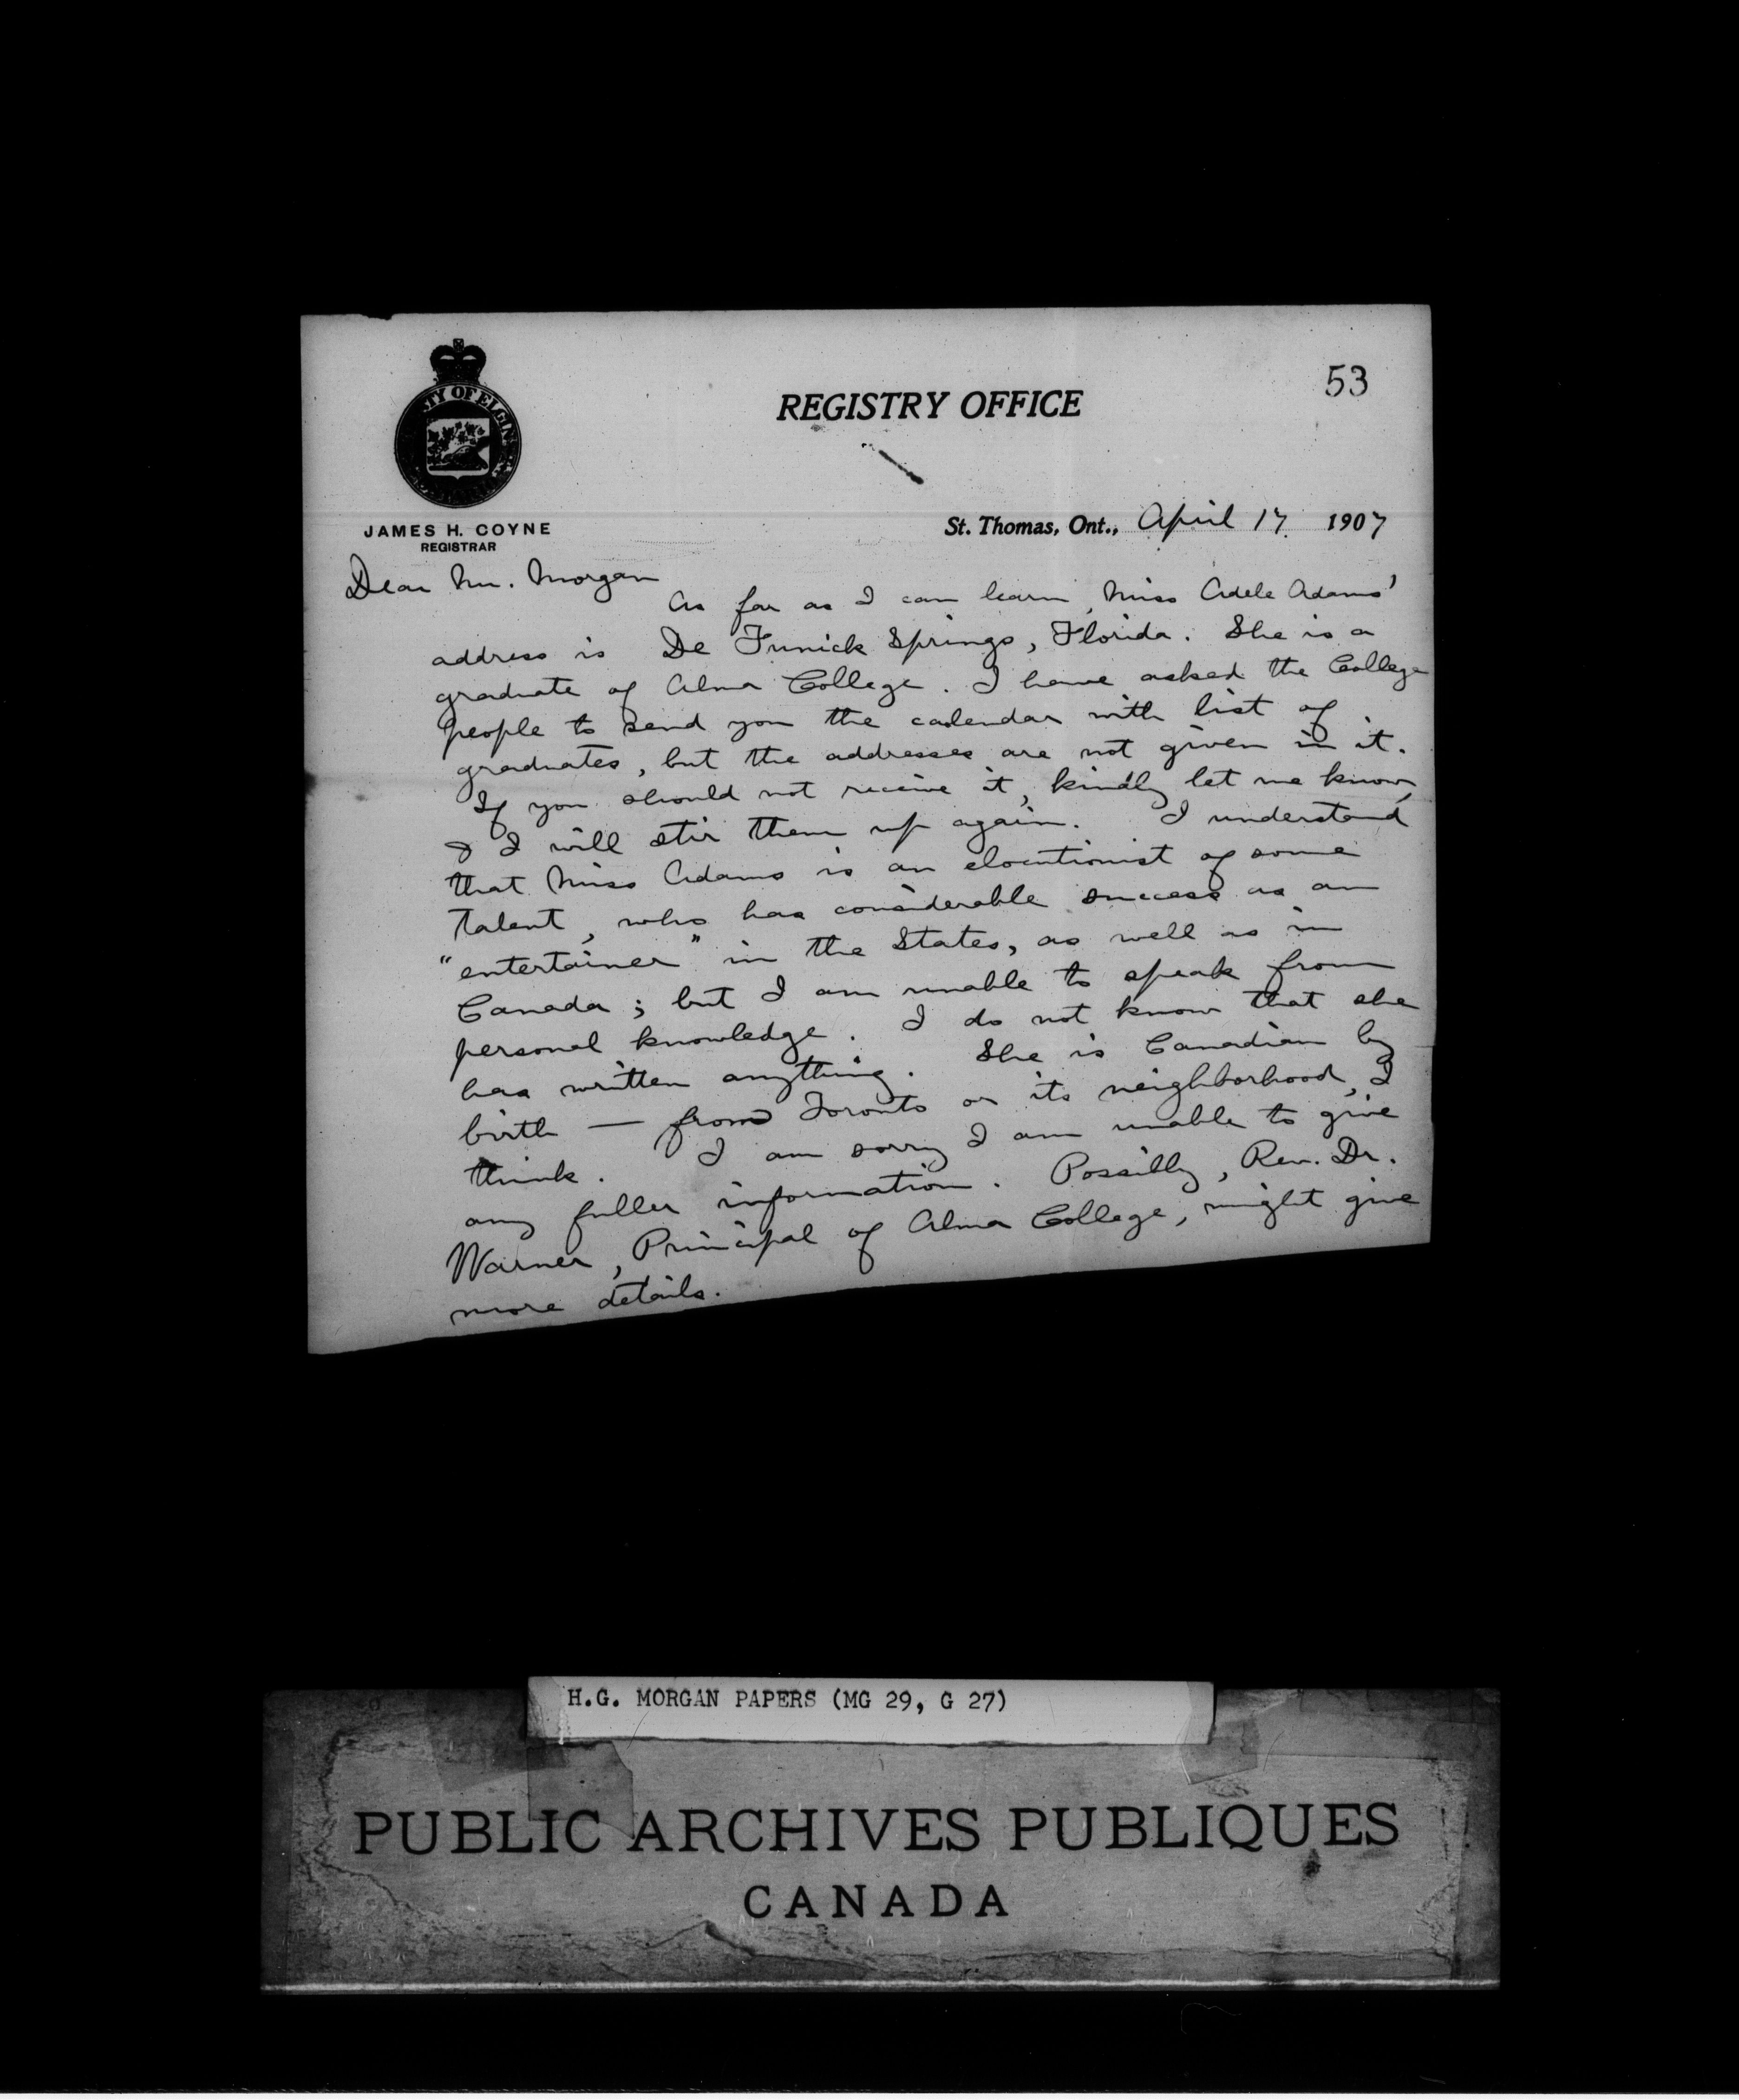 53
REGISTRY OFFICE
TY OF ELGIN
JAMES H. COYNE
REGISTRAR
St. Thomas, Ont., April 17 1907
Dear Mr. Morgan
As far as I can learn, Miss Adele Adams'
address is De Funick Springs, Florida. She is a
graduate of Alma College. I have asked the College
people to send you the calendar with list of
graduates, but the addresses are not given in it.
If you should not receive it, kindly let me know,
& I will stir them up again. I understand
that Miss Adams is an elocutionist of some
talent, who has considerable success as an
"entertainer" in the States, as well as in
Canada; but I am unable to speak from
personal knowledge. I do not know that she
has written anything. She is Canadian by
birth — from Toronto or its neighborhood, I
think. I am sorry I am unable to give
any fuller information. Possibly, Rev. Dr.
Warner, Principal of Alma College, might give
more details.
H.G. MORGAN PAPERS (MG 29, G 27)
PUBLIC ARCHIVES PUBLIQUES
CANADA